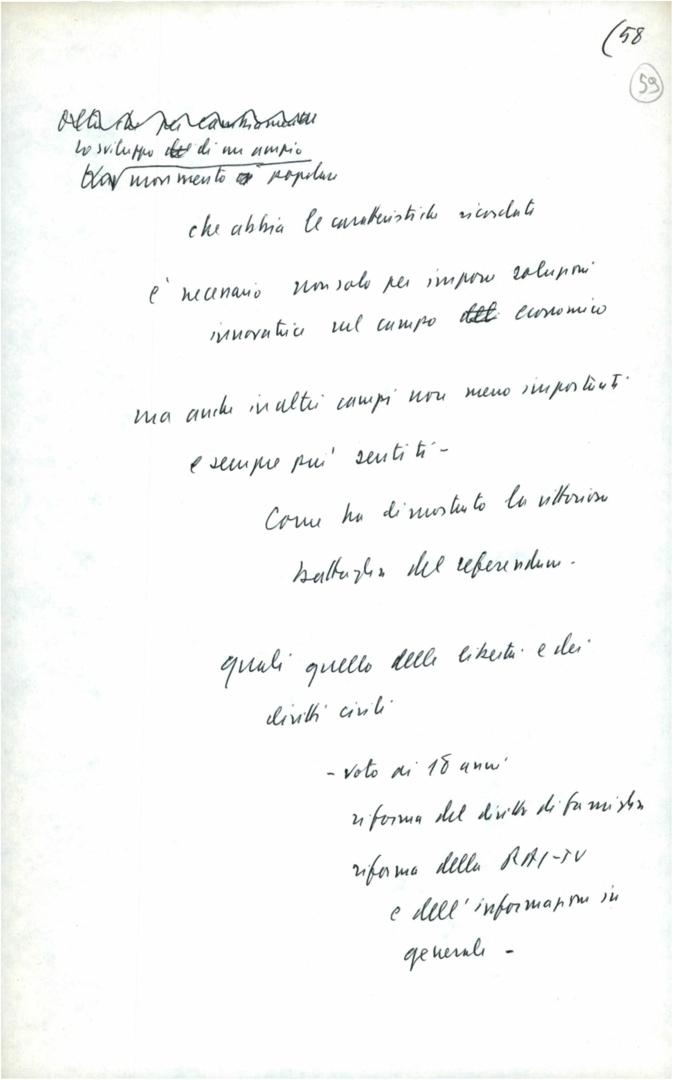 (58
59
Lo sviluppo di un ampio
movimento popolare
che abbia le caratteristiche ricordate
è necessario non solo per imporre soluzioni
innovatrici sul campo economico
ma anche in altri campi non meno importanti
e sempre più sentiti -
Come ha dimostrato la vittoriosa
battaglia del referendum.
quali quello delle libertà e dei
diritti civili
- voto ai 18 anni
riforma del diritto di famiglia
riforma della RAI-TV
e dell'informazione in
generale -